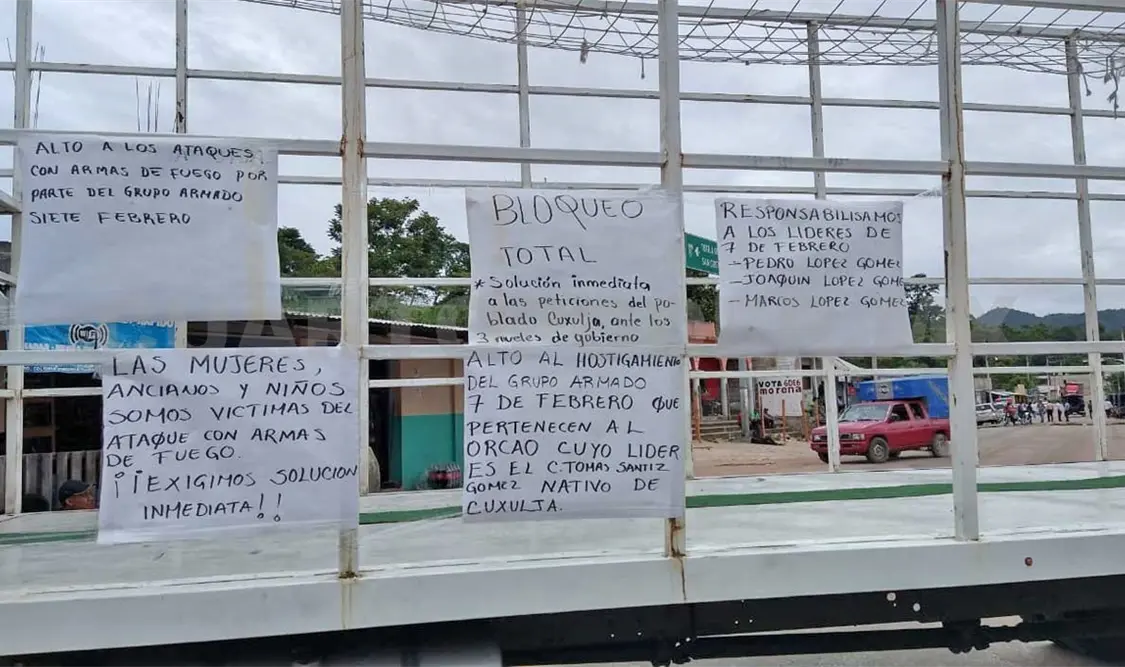 ALTO A LOS ATAQUES
CON ARMAS DE FUEGO POR
PARTE DEL GRUPO ARMADO
SIETE FEBRERO
BLOQUEO
TOTAL
* Solución inmediata
a las peticiones del po-
blado Cuxulja, ante los
3 niveles de gobierno
RESPONSABILISAMOS
A LOS LIDERES DE
7 DE FEBRERO
- PEDRO LOPEZ GOMEZ
- JOAQUIN LOPEZ GOME
- MARCOS LOPEZ GOMEZ
LAS MUJERES,
ANCIANOS Y NIÑOS
SOMOS VICTIMAS DEL
ATAQUE CON ARMAS
DE FUEGO.
¡¡EXIGIMOS SOLUCION
INMEDIATA!!
ALTO AL HOSTIGAMIENTO
DEL GRUPO ARMADO
7 DE FEBRERO QUE
PERTENECEN AL
ORCAO CUYO LIDER
ES EL C. TOMAS SANTIZ
GOMEZ NATIVO DE
CUXULJA.
VOTA
morena